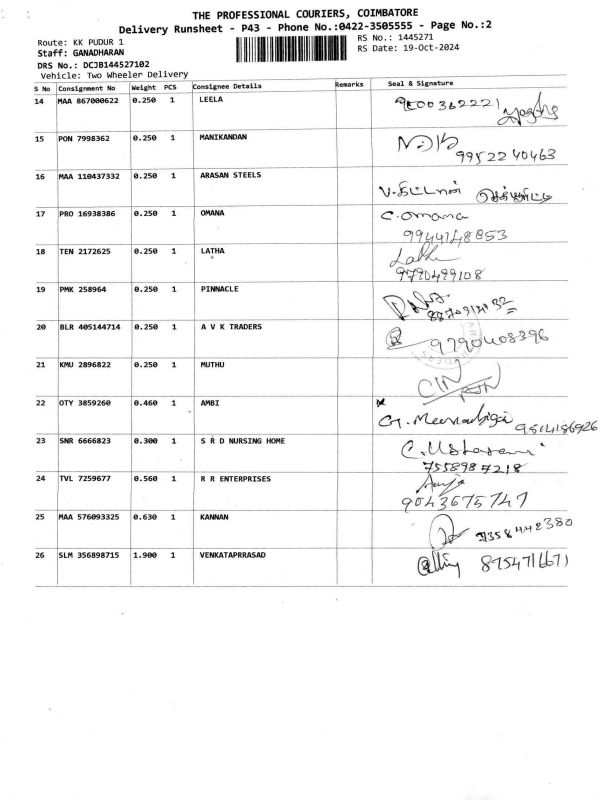 THE PROFESSIONAL COURIERS, COIMBATORE
Delivery Runsheet - P43 - Phone No.:0422-3505555 - Page No.:2
Route: KK PUDUR 1
RS No.: 1445271
Staff: GANADHARAN
RS Date: 19-Oct-2024
DRS No.: DCJB144527102
Vehicle: Two Wheeler Delivery
S No Consignment No Weight PCS Consignee Details Remarks Seal & Signature
14 MAA 867000622 0.250 1 LEELA
15 PON 7998362 0.250 1 MANIKANDAN
9952240463
16 MAA 110437332 0.250 1 ARASAN STEELS
17 PRO 16938386 0.250 1 OMANA C. Omana
9944148853
18 TEN 2172625 0.250 1 LATHA Latha
9790499108
19 PMK 258964 0.250 1 PINNACLE
20 BLR 405144714 0.250 1 A V K TRADERS 9790408396
21 KMU 2896822 0.250 1 MUTHU
22 OTY 3859260 0.460 1 AMBI
9514186926
23 SNR 6666823 0.300 1 S R D NURSING HOME
7558987218
24 TVL 7259677 0.560 1 R R ENTERPRISES
9043675747
25 MAA 576093325 0.630 1 KANNAN
26 SLM 356898715 1.900 1 VENKATAPRRASAD 8754716671